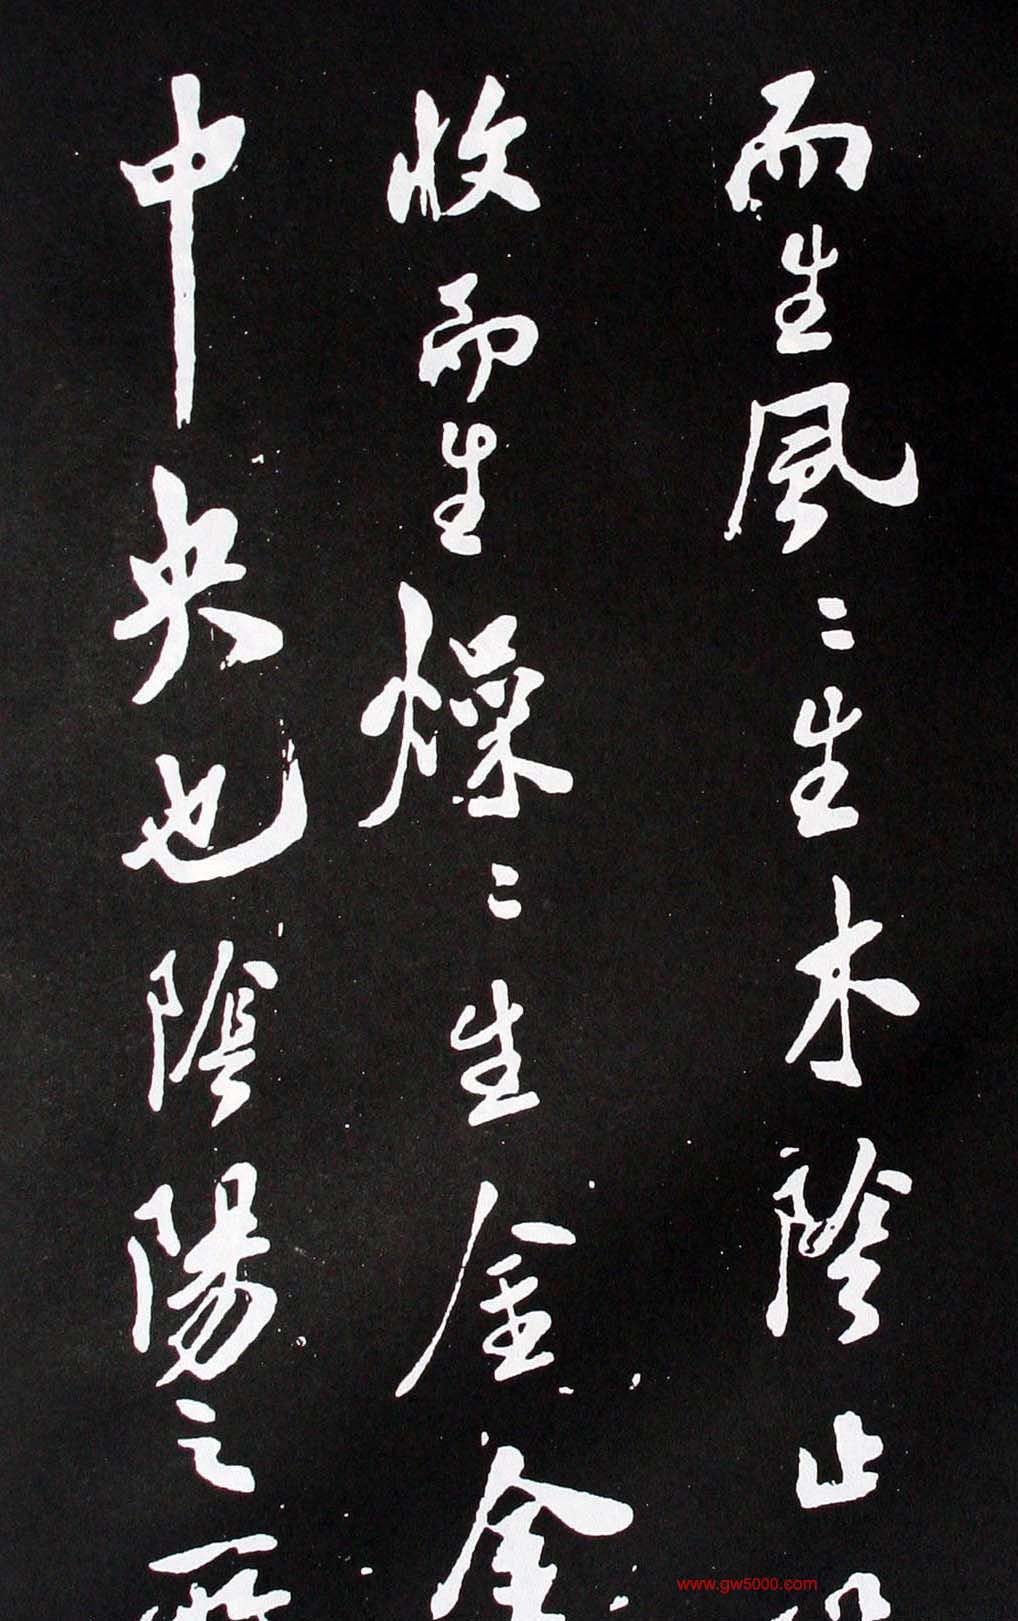 而生風〻生木陰止
收而生燥〻生金金
中央也陰陽之所
www.gw5000.com